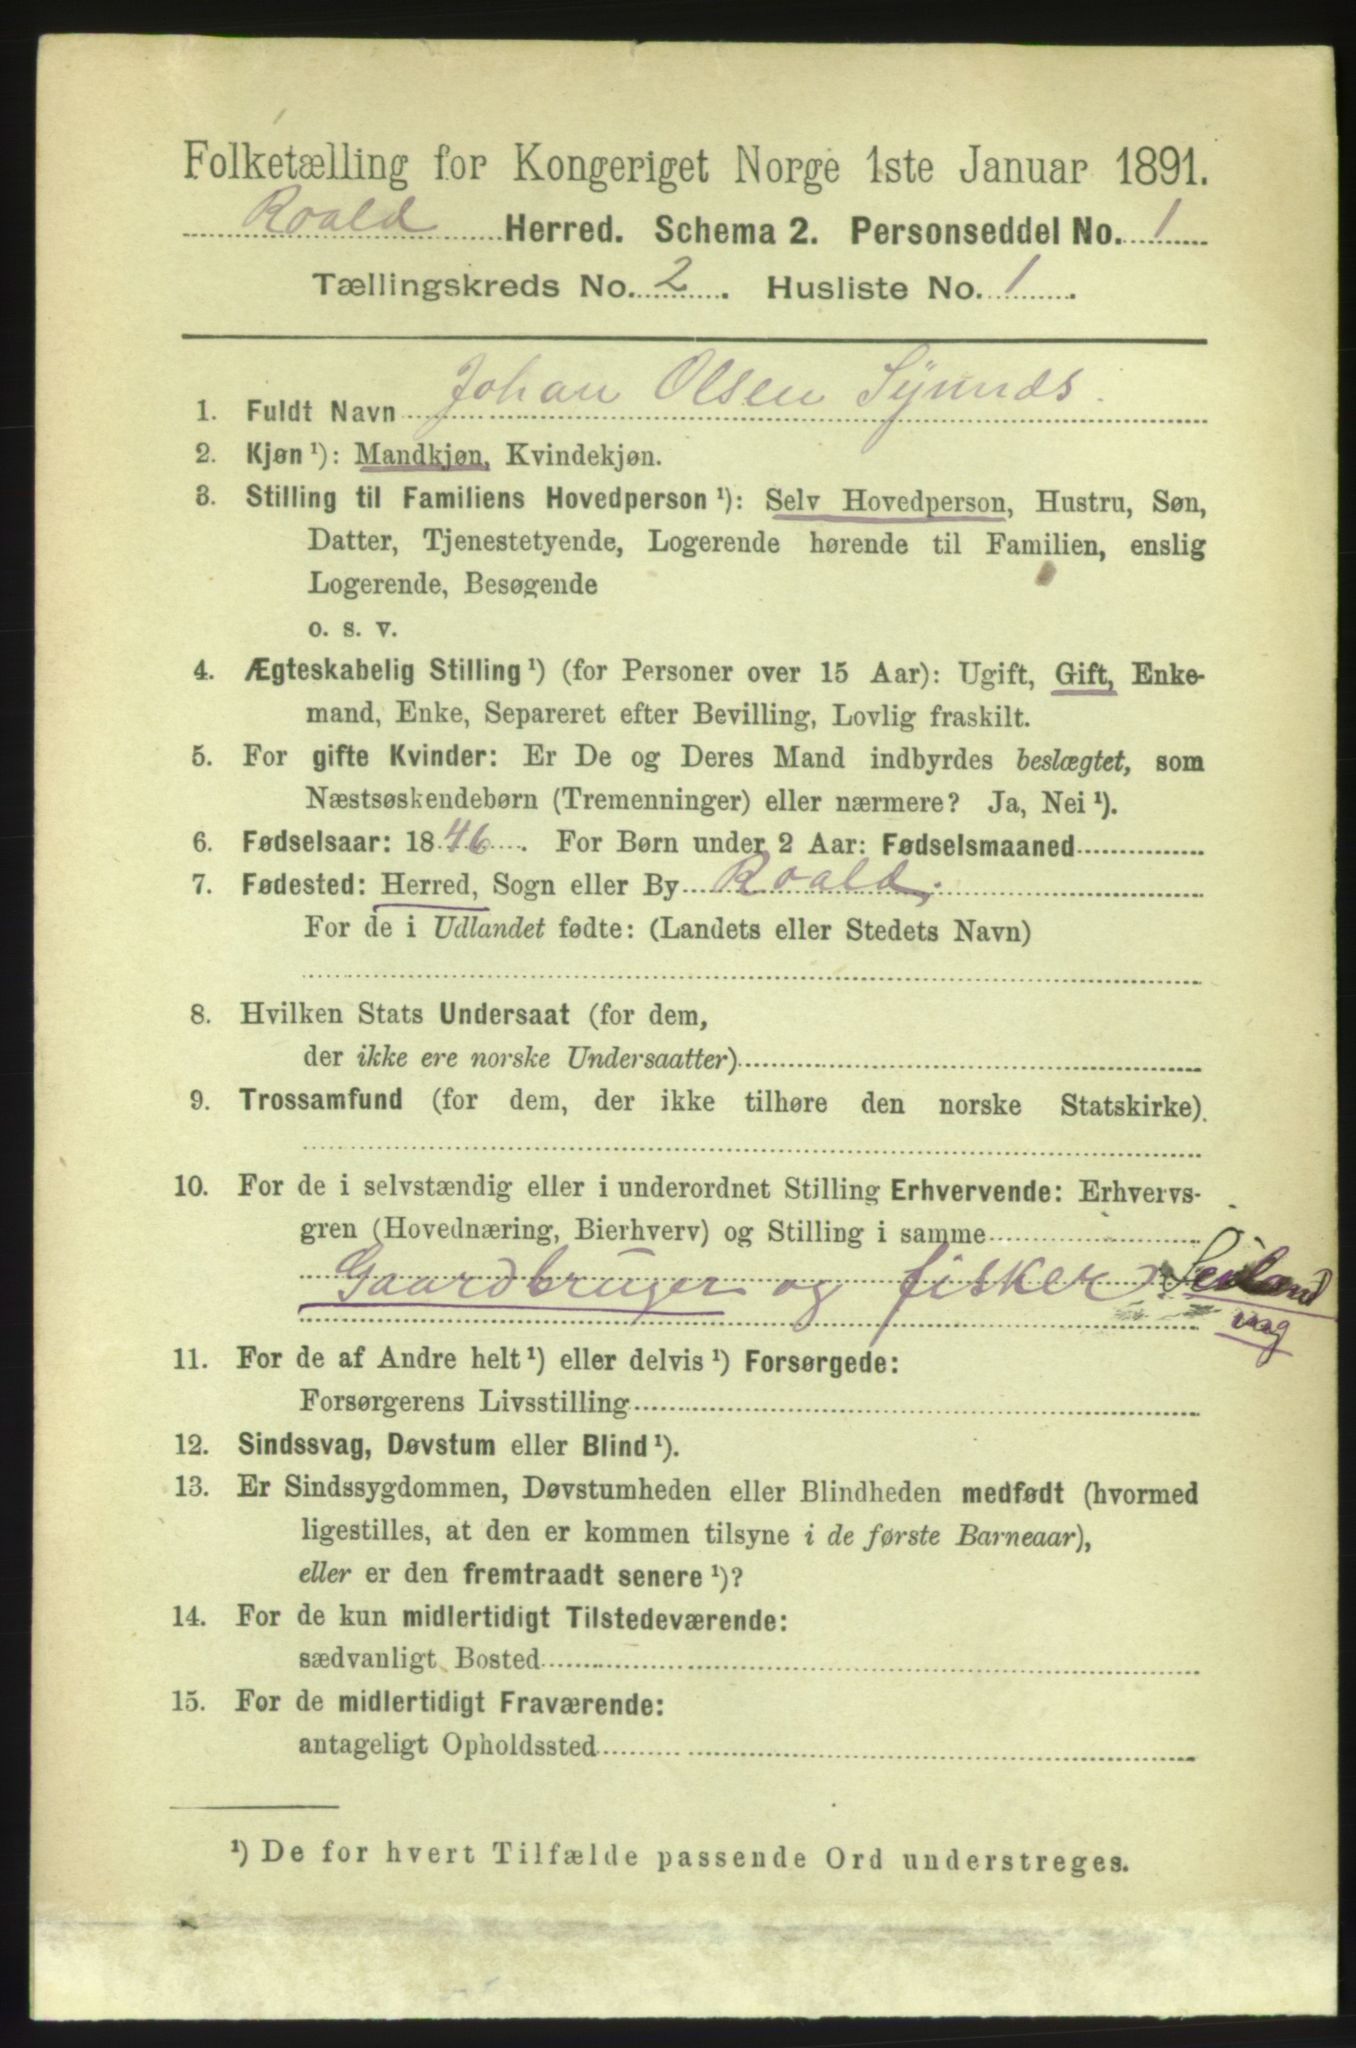 Folketælling for Kongeriget Norge 1ste Januar 1891.
Roald Herred. Schema 2. Personseddel No. 1
Tællingskreds No. 2. Husliste No. 1.
1. Fuldt Navn Johan Olsen Synnæs.
2. Kjøn ¹): Mandkjøn, Kvindekjøn.
3. Stilling til Familiens Hovedperson ¹): Selv Hovedperson, Hustru, Søn,
Datter, Tjenestetyende, Logerende hørende til Familien, enslig
Logerende, Besøgende
o. s. v.
4. Ægteskabelig Stilling ¹) (for Personer over 15 Aar): Ugift, Gift, Enke-
mand, Enke, Separeret efter Bevilling, Lovlig fraskilt.
5. For gifte Kvinder: Er De og Deres Mand indbyrdes beslægtet, som
Næstsøskendebørn (Tremenninger) eller nærmere? Ja, Nei ¹).
6. Fødselsaar: 1846. For Børn under 2 Aar: Fødselsmaaned
7. Fødested: Herred, Sogn eller By Roald.
For de i Udlandet fødte: (Landets eller Stedets Navn)
8. Hvilken Stats Undersaat (for dem,
der ikke ere norske Undersaatter)
9. Trossamfund (for dem, der ikke tilhøre den norske Statskirke).
10. For de i selvstændig eller i underordnet Stilling Erhvervende: Erhvervs-
gren (Hovednæring, Bierhverv) og Stilling i samme
Gaardbruger og fisker
11. For de af Andre helt ¹) eller delvis ¹) Forsørgede:
Forsørgerens Livsstilling
12. Sindssvag, Døvstum eller Blind ¹).
13. Er Sindssygdommen, Døvstumheden eller Blindheden medfødt (hvormed
ligestilles, at den er kommen tilsyne i de første Barneaar),
eller er den fremtraadt senere ¹)?
14. For de kun midlertidigt Tilstedeværende:
sædvanligt Bosted
15. For de midlertidigt Fraværende:
antageligt Opholdssted
¹) De for hvert Tilfælde passende Ord understreges.